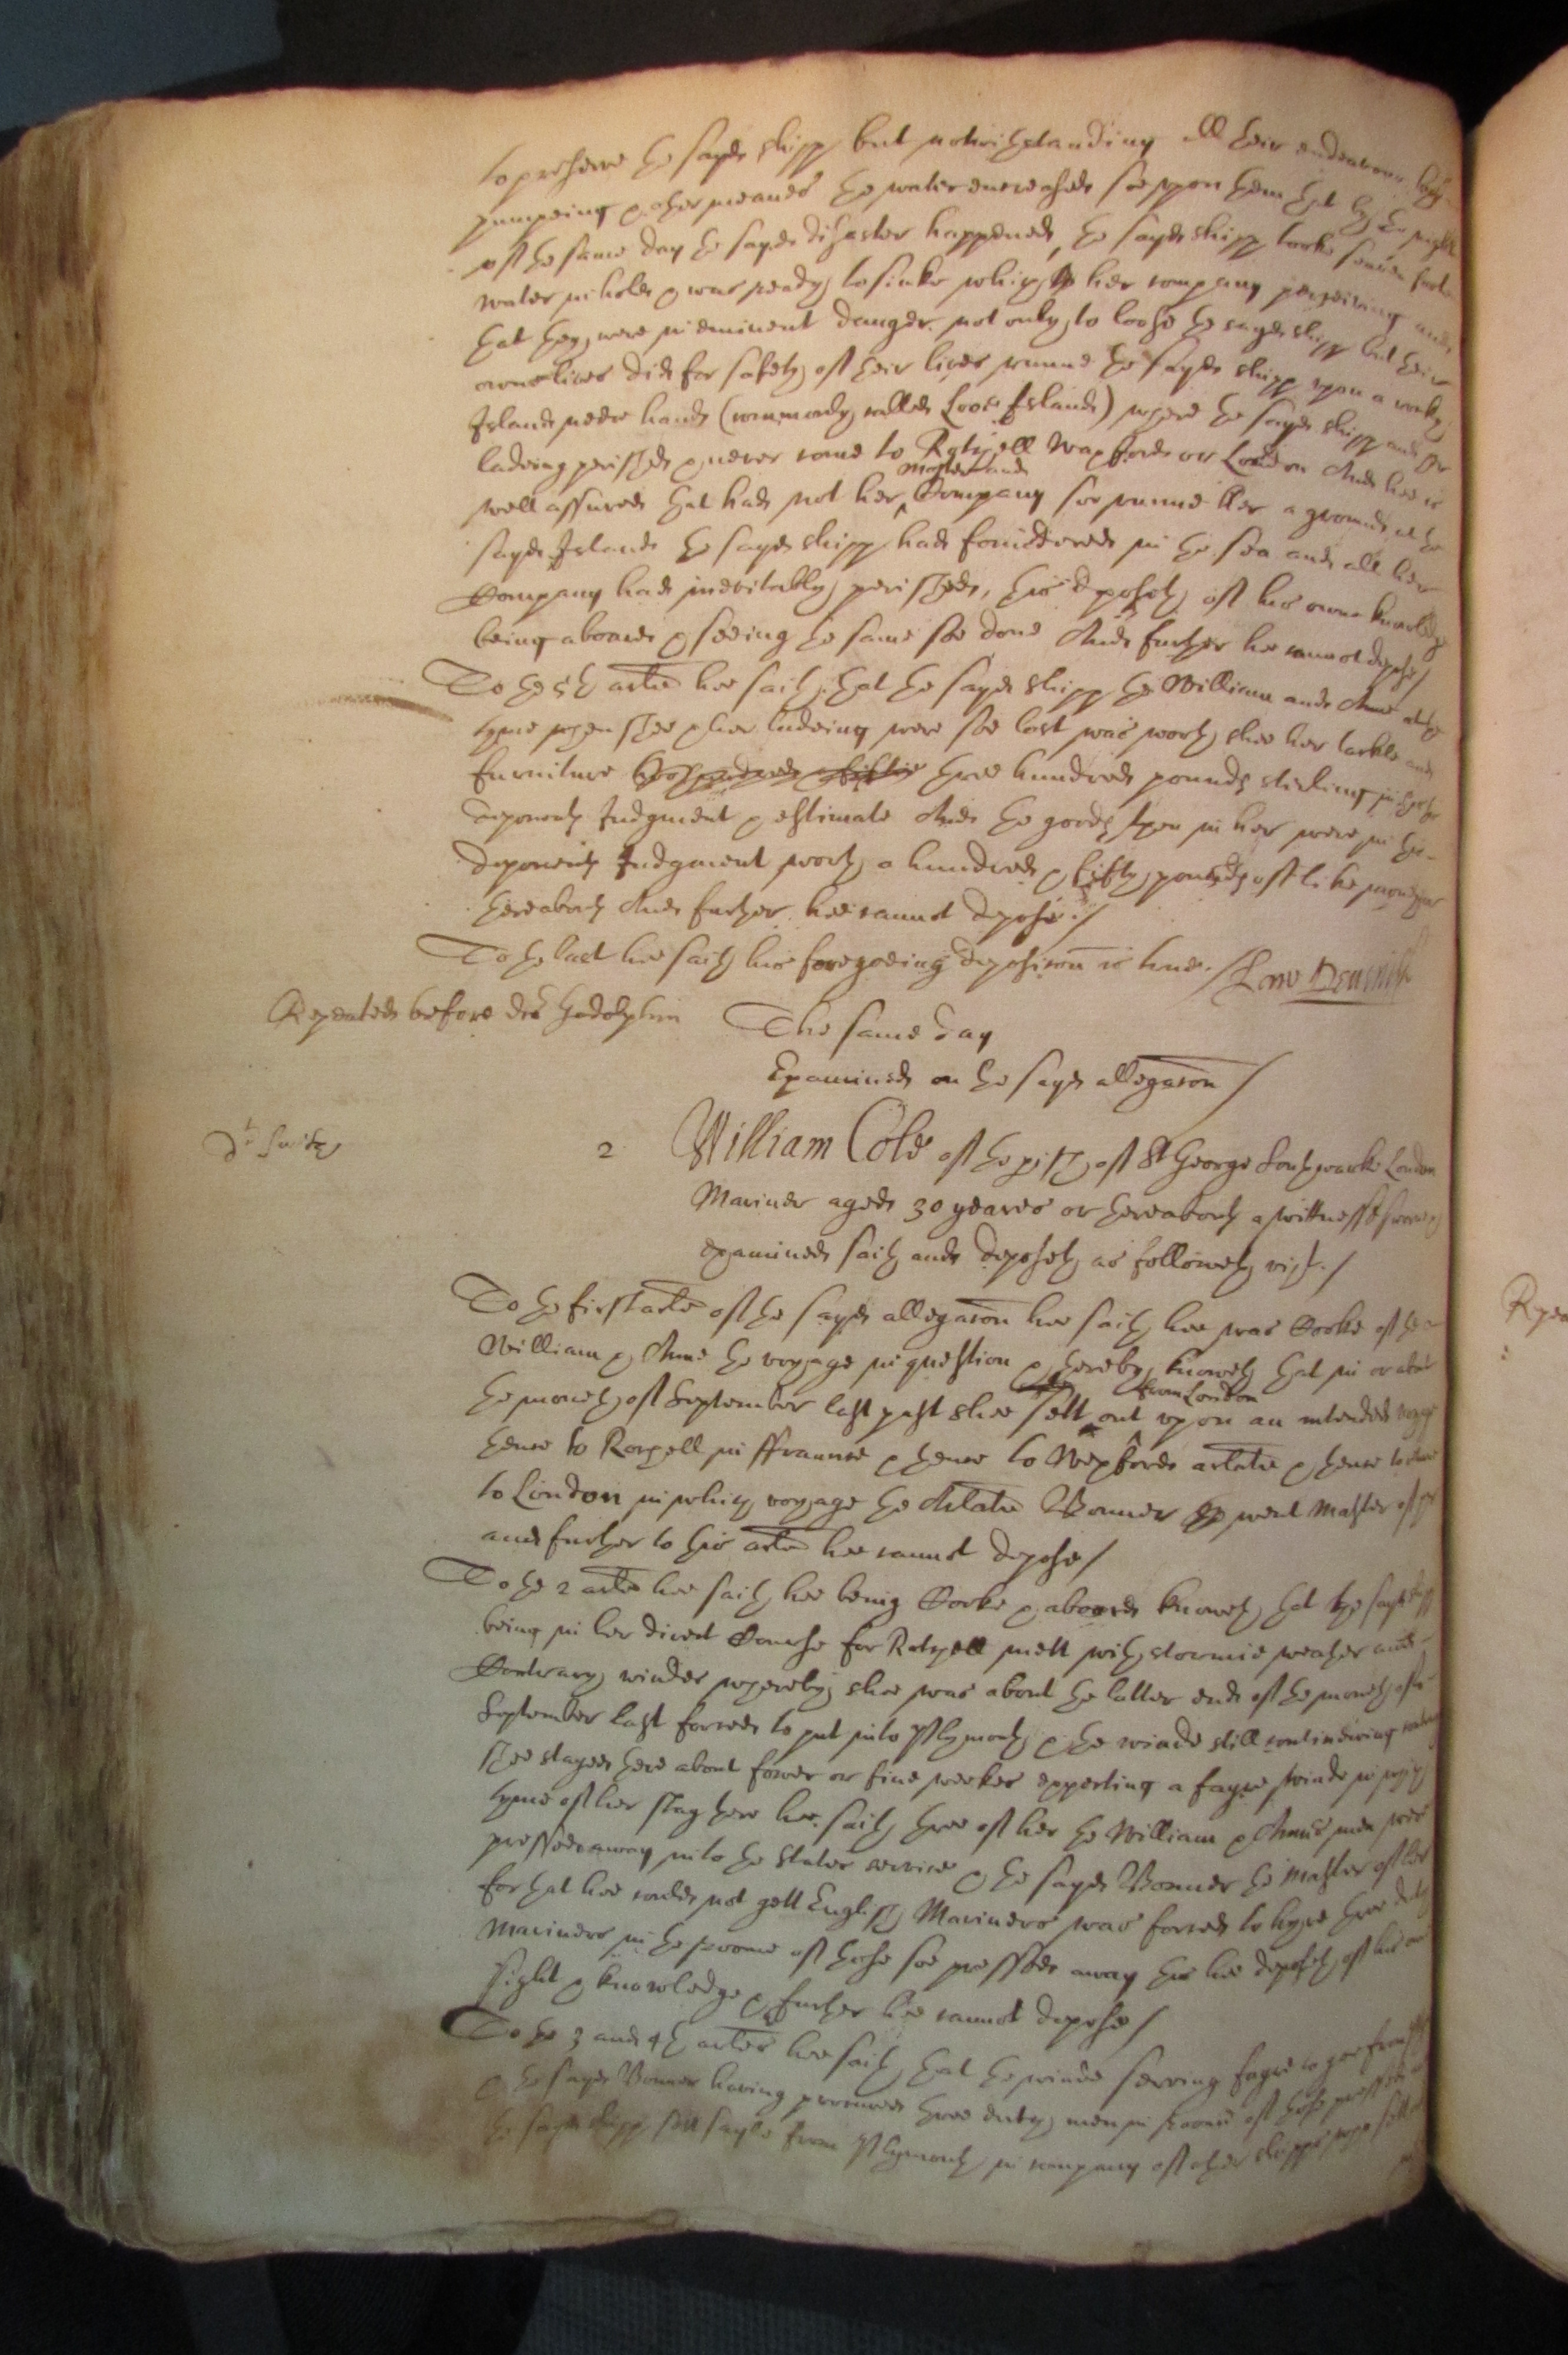 to preserve the sayde shipp but notwithstanding all their endeavours by
pumpeing & other meanes the water encreased soe upon them that by the night
of the same day the sayde disaster happened, the sayde shipp tooke seaven foote
water in hold & was ready to sinke which her company perceiving and
that they were in eminent danger not only to loose the sayde shipp but their
owne lives did for safety of their lives runne the sayde shipp upon a rocky
Island neere hand (commonly called Loose Island) where the sayde shipp and her
ladeing perished & never came to Rotchell Waxforde or London And hee is
well assured that had not her master and Company soe runne her a ground at the
sayde Island the sayde shipp had foundered in the sea and all her
Company had inevitably perished, this hee deposeth of his owne knowledge
being aboard & seeing the same soe done And further hee cannot depose/
To the 5th arle hee saith that the sayde shipp the William and Anne at the
tyme when shee & her ladeing were soe lost was worth shee her tackle and
furniture three hundred pounds sterling in this
deponents Judgment & estimate And the goods then in her were in this
deponents Judgment worth a hundred & fifty pounds of like money or
thereabouts And further hee cannot depose./
To the last hee saith his foregoeing deposicon is true./
Repeated before dr Godolphin
The same day
Examined on the sayde allegacon/
dt Smith
2 William Cole of the pish of St George Southwarke London
Mariner aged 30 yeares or thereabouts a wittnesse sworne &
examined saith and deposeth as followeth vizt./
To the first arle of the sayde allegacon hee saith hee was Cooke of the
William & Anne the voyage in question & thereby knoweth that in or about
the moneth of September last past shee sett out from London upon an intended voyage
thence to Rochell in ffraunce & thence to Wexforde arlate & thence to
to London in which voyage the Arlate Bonner went Master of her
and further to this arle hee cannot depose/
To the 2 arle hee saith hee being Cooke & aboord knoweth that the sayde shipp
being in her direct Course for Rotchell mett with stormie weather and
Contrary windes whereby shee was about the latter end of the moneth of
September last forced to put into Plymouth & the winde still continueing contrary
shee stayed there about fower or five weekes expecting a fayre winde in which
tyme of her stay there hee saith three of her the William & Annes men were
pressed away into the States service & the sayde Bonner the Master of her
for that hee could not gett English Mariners was forced to hyre three dutch
Mariners in the roome of those soe pressed away this hee deposeth of his owne
sight & knowledge & further hee cannot depose/
To the 3 and 4th arles hee saith that the winde serving fayre to goe from
& the sayde Bonner having procured three dutch men in roome of those pressed
the sayde shipp sett sayle from Plymouth in company of other shipps